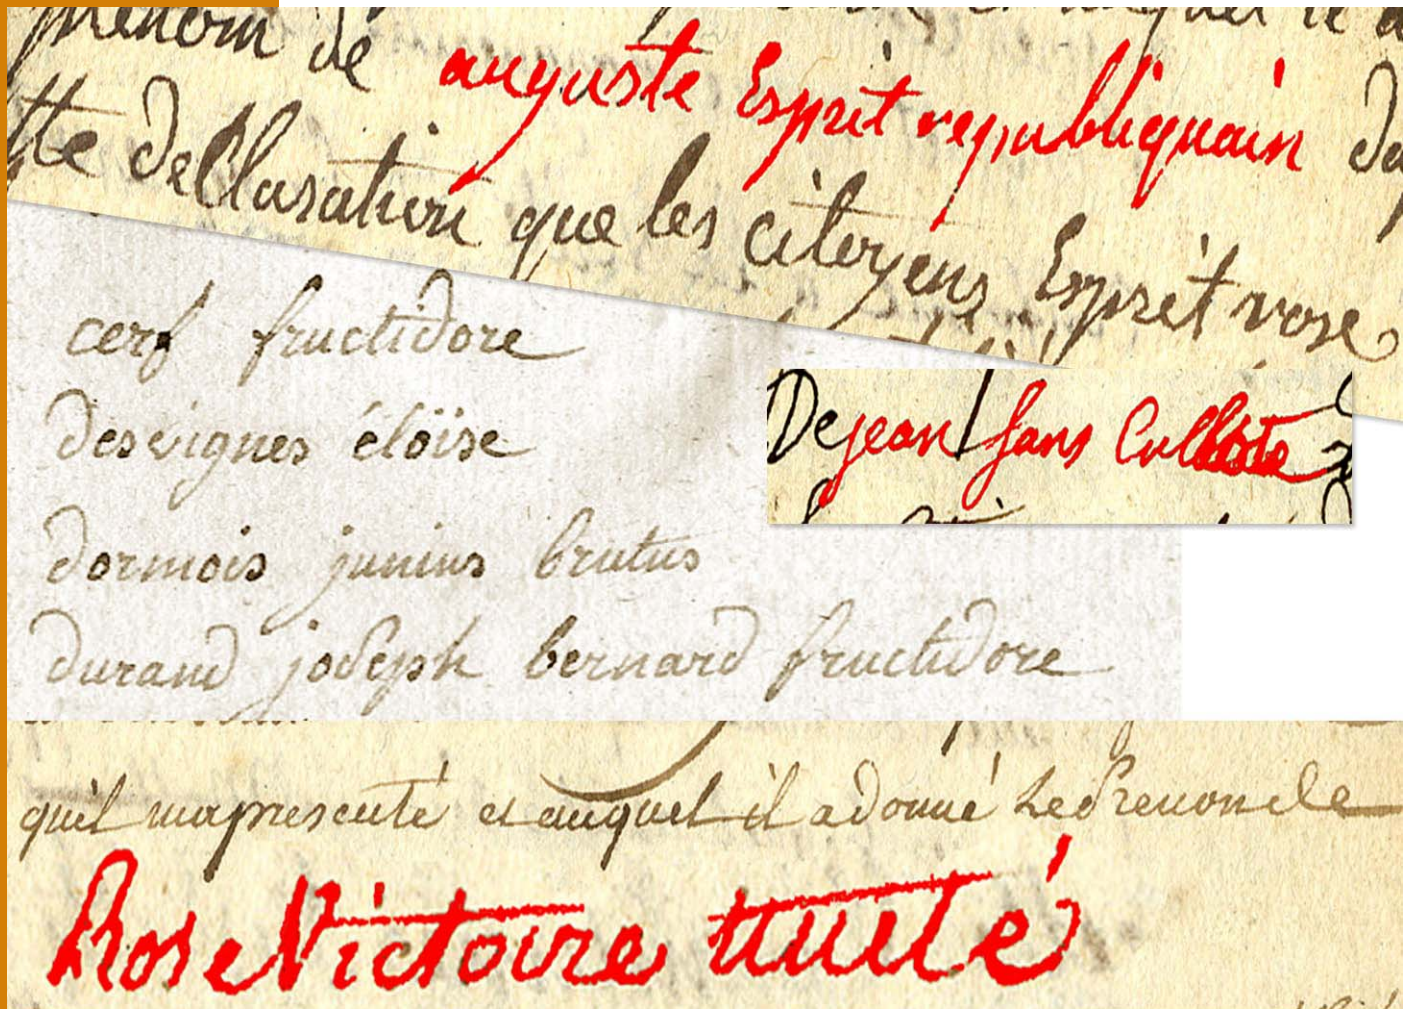 prénom de auguste Esprit republiquain
tte decllaration que les citoyens Esprit rose
cerf fructidore
desvignes éloïse
dormois junius brutus
durand joseph bernard fructidore
De jean Sans Cullote
quil mapresenté et auquel il adonné Le Prenom de
Rose Victoire unité